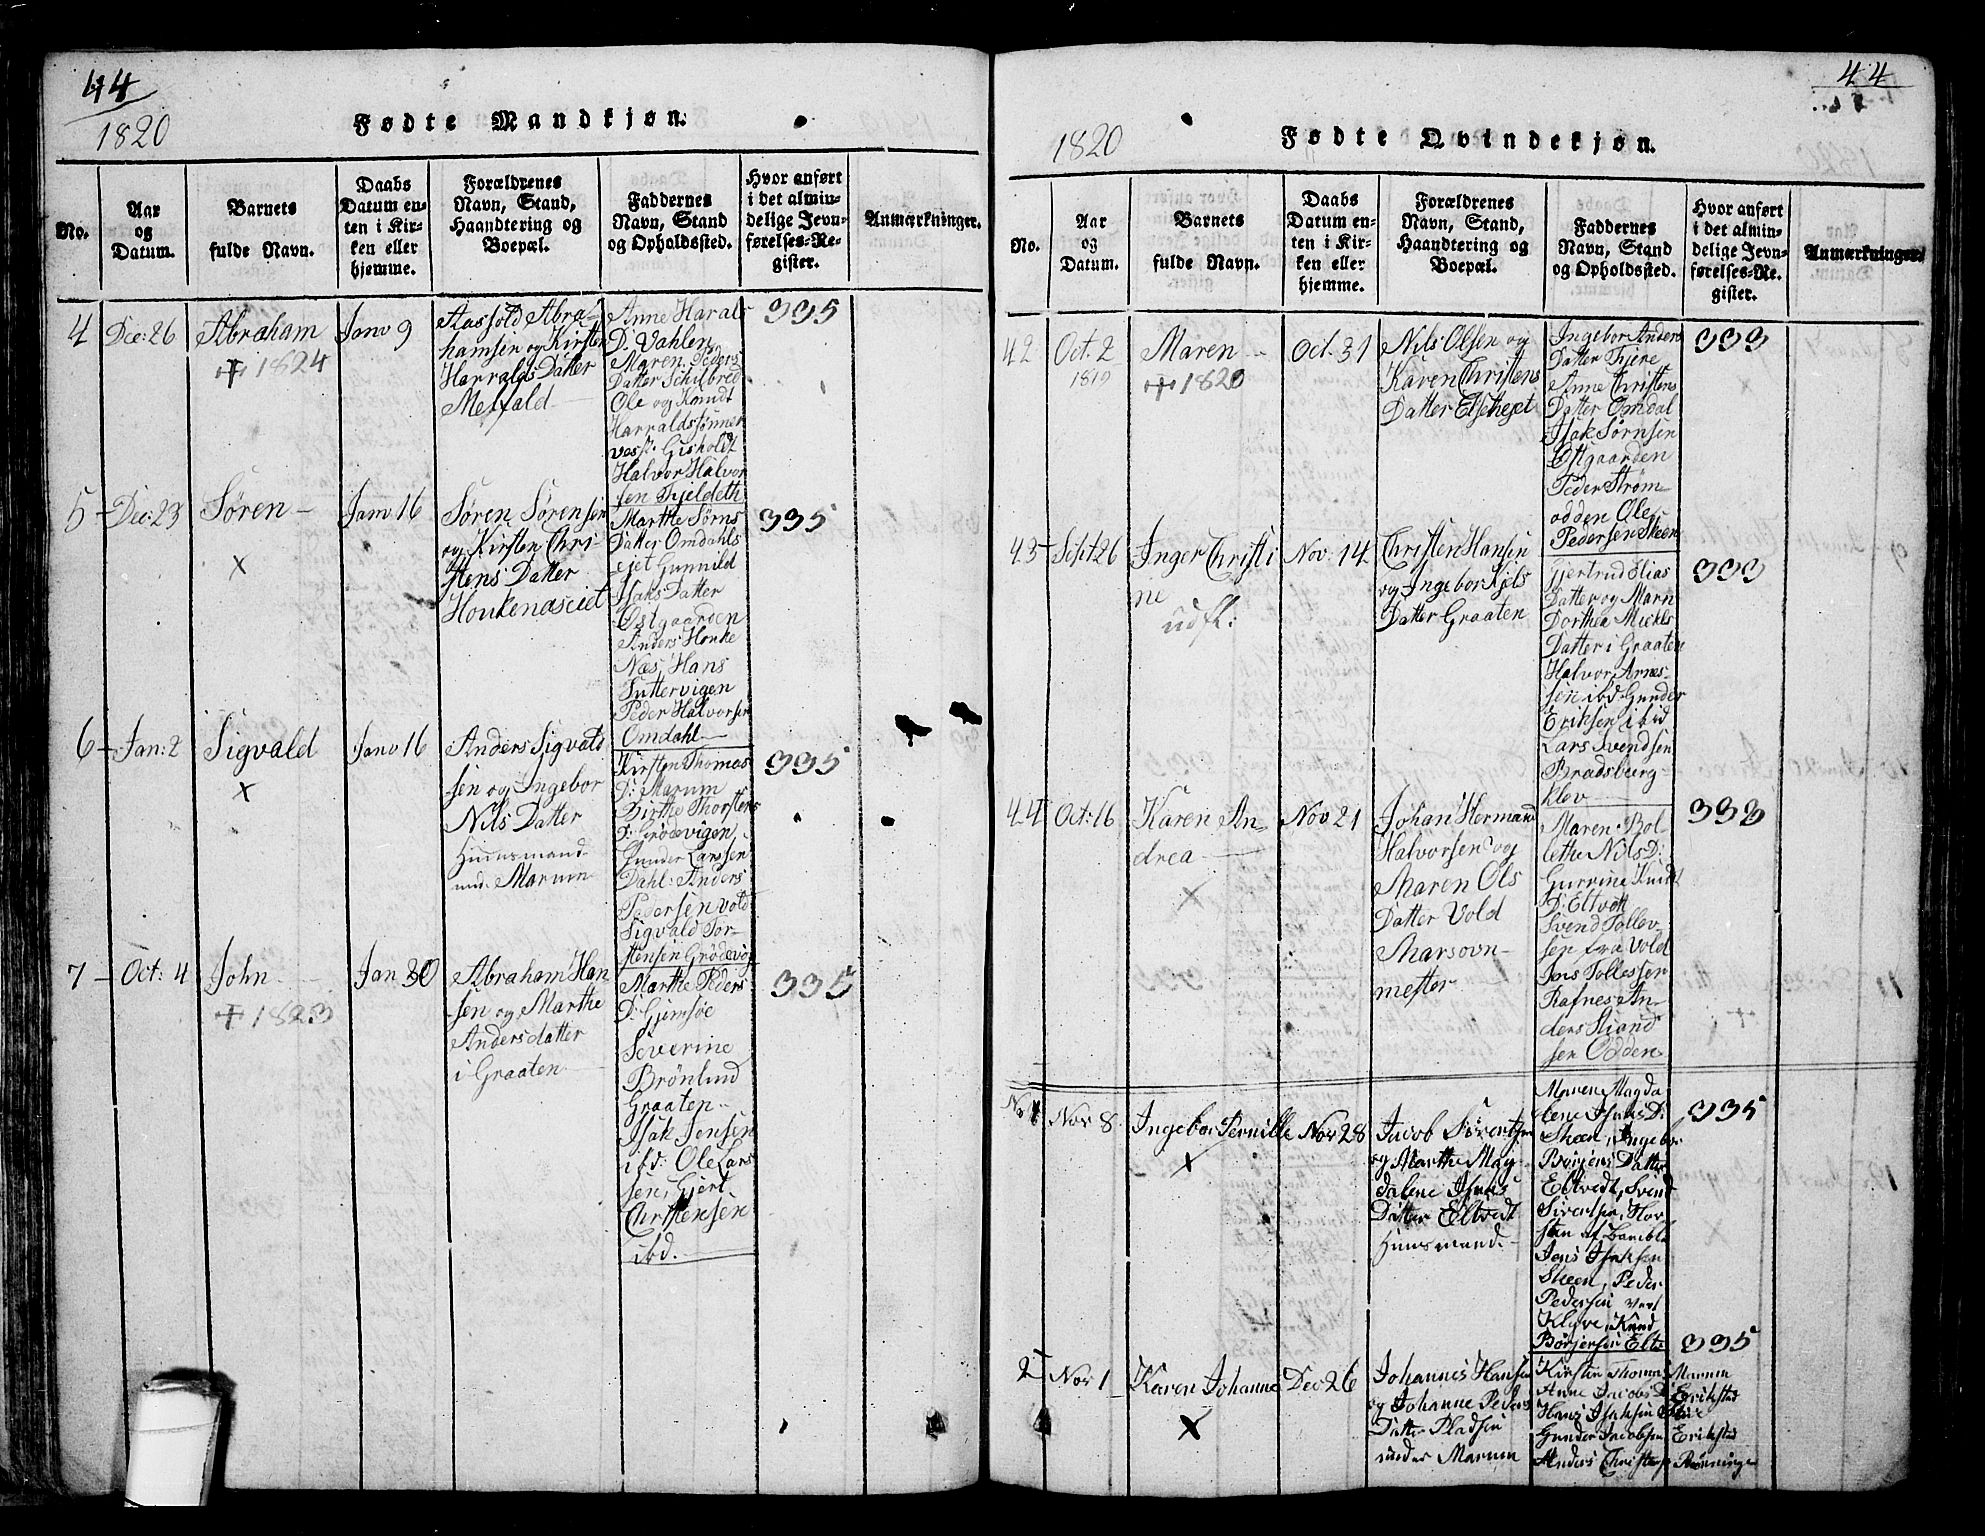 44
1820
Fødte Mandkjøn.
No.
Aar
og
Datum.
Barnets
fulde Navn.
Daabs
Datum en-
ten i Kir-
ken eller
hjemme.
Forældrenes
Navn, Stand,
Haandtering og
Boepæl.
Faddernes
Navn, Stand
og Opholdssted.
Hvor anført
i det almin-
delige Jevn-
førelses-Re-
gister.
Anmærkninger.
4
Dec: 26
Abraham
+ 1824
Janv 9
Aasfold Abra-
hamsen og Kirsten
Harralds Datter
Melfald
Anne Harals
D. Vahlen
Maren Peders
Datter Schilbred
Ole og Knudt
Harraldsønner
vest: Gisholdt
Halvor Halvor
sen Fjeldeth
335
5 - Dec: 23
Søren -
x
Janv 16
Søren Sørensen
og Kirsten Chri-
stens Datter
Houkenæseiet
Marthe Sørns
Datter Omdahls
ejet Gunnild
Isaks Datter
Østgaarden
Anders Houke
Næs, Hans
Futtervigen
Peder Halvorsen
Omdahl
335
6 - Jan: 2
Sigvald
x
Janv 16
Anders Sigvalds
sen og Ingebor
Nils Datter
Huusmand
und. Marum
Kirsten Thomas
D: Marum
Birthe Thorstens
D: Grødevigen
Gunder Larssen
Dahl: Anders
Pedersen vold
Sigvald Tor-
stensen Grødevig
335
7 - Oct: 4
John
+ 1823
Jan 30
Abraham Han-
sen og Marthe
Anders datter
i Graaten
Marthe Peders
D: Gjemsøe
Severine
Brönlund
Graaten
Isak Jensen
ibd: Ole Lars
sen, Gjert
Christensen
ibd.
335
44
1820
Fødte Qvindekjøn.
No.
Aar
og
Datum.
Barnets
fulde Navn.
Daabs
Datum en-
ten i Kir-
ken eller
hjemme.
Forældrenes
Navn, Stand,
Haandtering og
Boepæl.
Faddernes
Navn, Stand
og Opholdssted.
Hvor anført
i det almin-
delige Jevn-
førelses-Re-
gister.
Anmærkninger
42
Oct. 2
1819
Maren
+ 1820
Oct. 31
Nils Olsen og
Karen Christens
Datter Elsthejet
Ingebor Anders
Datter Fjere
Anne Christens
Datter Omdal
Isak Sørnsen
Østgaarden
Peder Strøm-
odden Ole
Pedersen Skeen
333
43 - Sept 26
Inger Christi
ne
udfl:
Nov: 14
Christen Hansen
og Ingebor Kjels
Datter Graaten
Gjertrud Elias
Datter og Marn
Dorthea Mickels
Datter i Graaten
Halvor Arnes-
sen ibd Gunder
Eriksen ibid
Lars Svendsen
Bradsberg-
klev
333
44
Oct: 16
Karen An-
drea
x
Nov 21
Johan Herman
Halvorsen og
Maren Ols
Datter Vold
Marsovn-
mester
Maren Bol-
lethe Nils D:
Gurrine Knudt
D: Eltvdt
Svend Tollev-
sen fra Vold
Jens Tollefsen
Rafnes An-
ders Stiand
sen Odden
333
No 1
Nov 8
Ingebor Pernille
x
Nov 28
Jacob Sørentsen
og Marthe Mag-
dalene Isaks
Datter Eltvedt
Huusmand
Maren Magda
lene Isaks D:
Skeen, Ingebor
Børjens Datter
Eltvedt, Svend
Sivertsen, Hov
sten af Bamble
Jens Isaksen
Skeen, Peder
Pedersen Vest
Klyve, Knud
Børjersen Eltv
335
2
Nov 1
Karen Johanne
x
Dec 26
Johannes Hansen
og Johanne Peders
Datter Pladsen
under Marum
Kirsten Thomas Marum
Anne Jacobs D Erikstad
Hans Isaksen
Gunder Jacobsen Erikstad
Anders Christens Rønninge
335